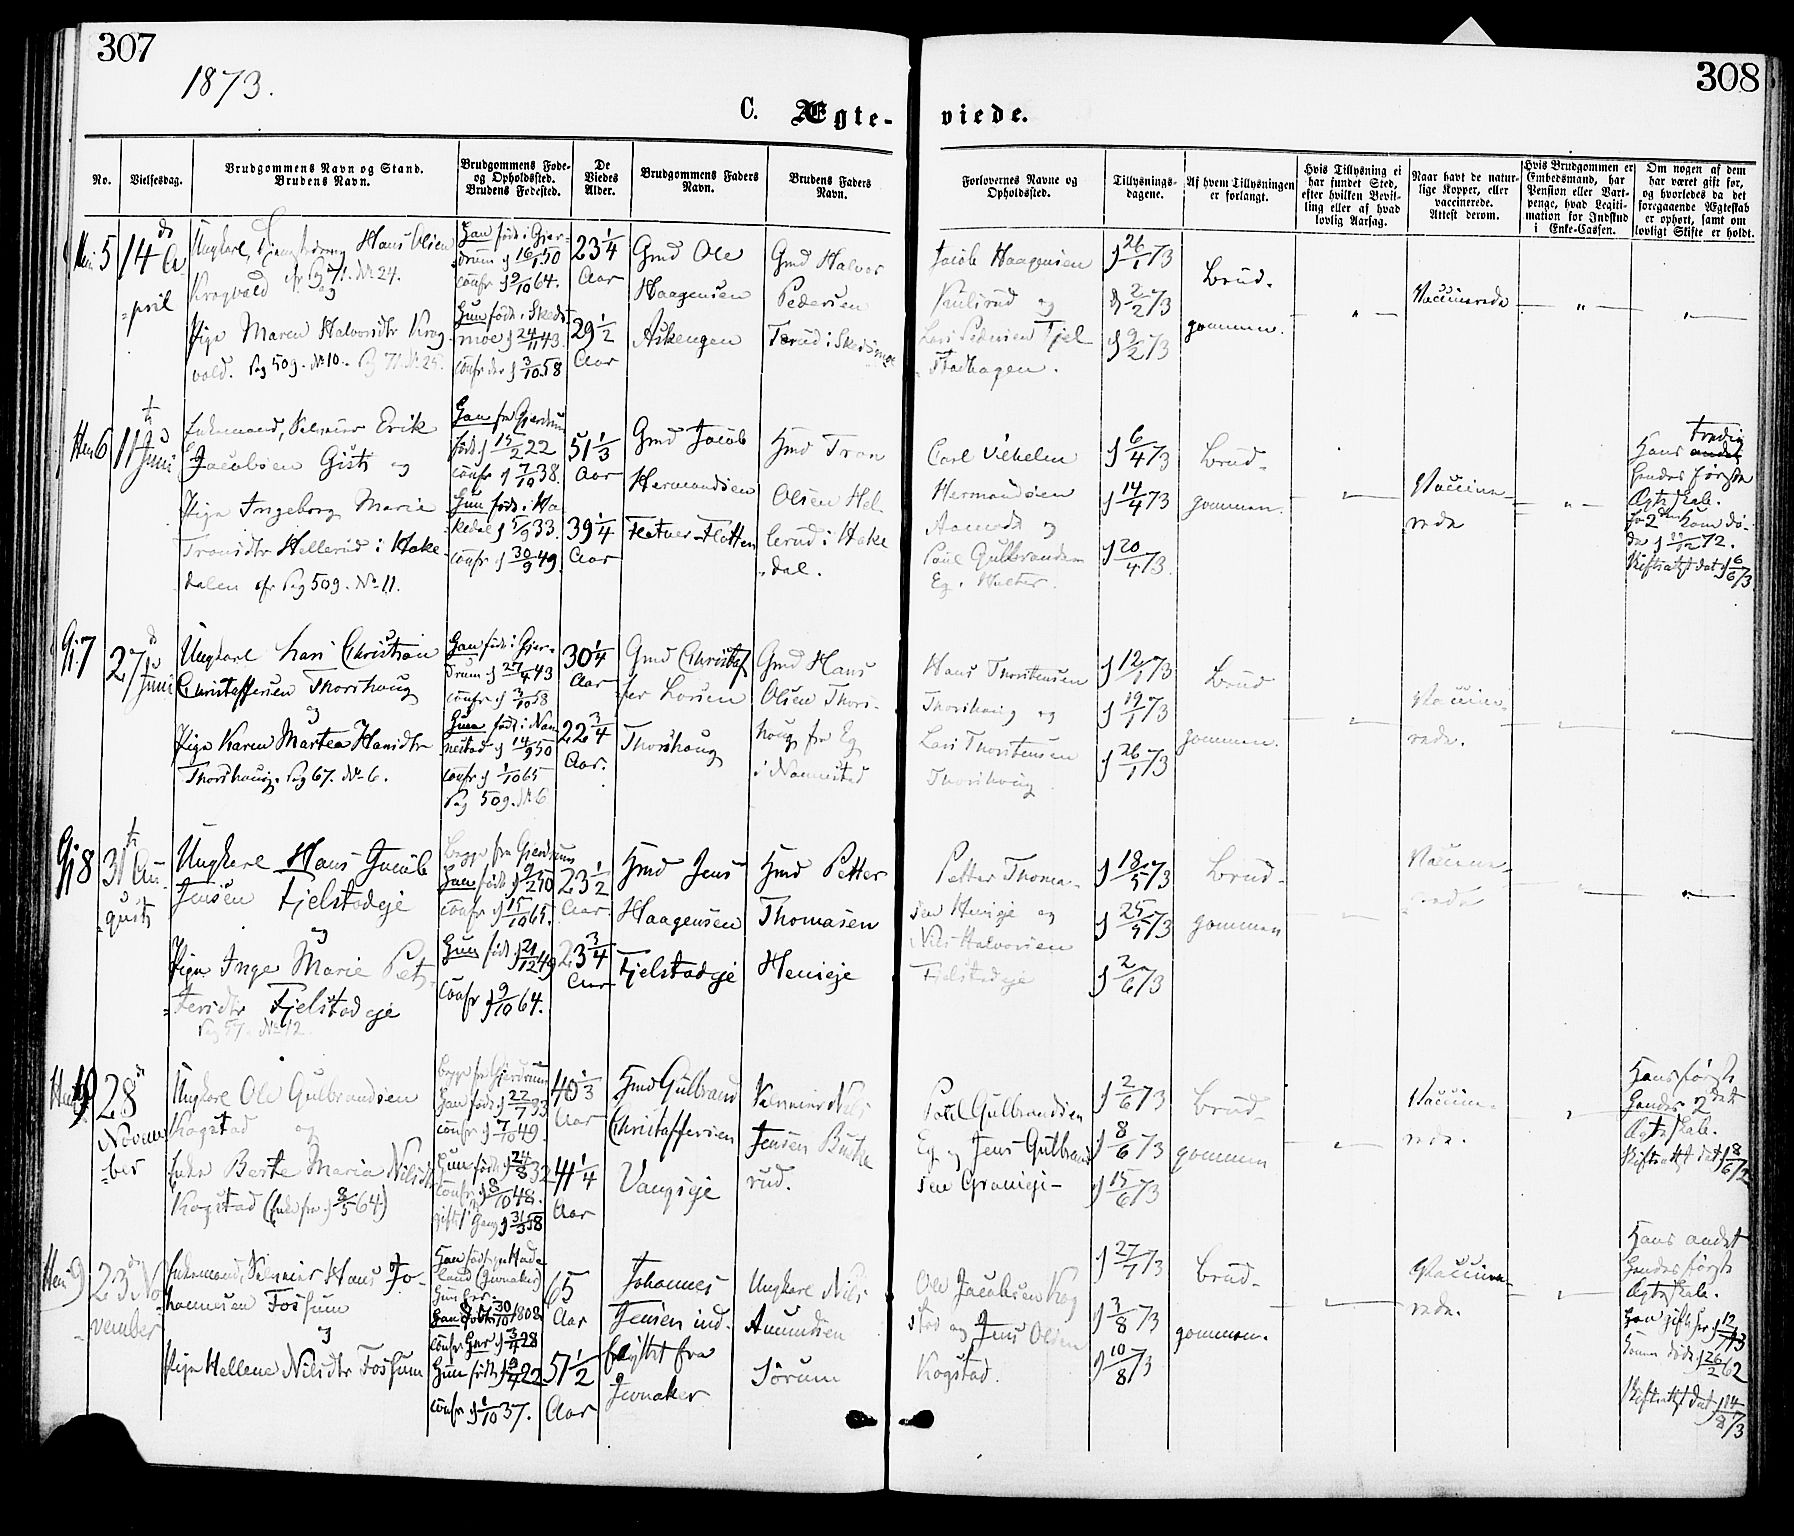 307
308
1873.
C. Ægte-
viede.
No.
Vielsesdag.
Brudgommens Navn og Stand.
Brudens Navn.
Brudgommens Føde-
og Opholdssted.
Brudens Fødested.
De
Viedes
Alder.
Brudgommens Faders
Navn.
Brudens Faders
Navn.
Forlovernes Navne og
Opholdssted.
Tillysnings-
dagene.
Af hvem Tillysningen
er forlangt.
Hvis Tillysning ei
har fundet Sted,
efter hvilken Bevil-
ling eller af hvad
lovlig Aarsag.
Naar havt de natur-
lige Kopper, eller
vaccinerede.
Attest derom.
Hvis Brudgommen er
Embedsmand, har
Pension eller Vart-
penge, hvad Legiti-
mation for Indskud
i Enke-Cassen.
Om nogen af dem
har været gift før,
og hvorledes da det
foregaaende Ægteskab
er ophørt, samt om
lovligt Skifte er holdt.
5
14 de A
-pril
Ungkarl, Hans Olsen
Kragvold No 24.
og
Pige Maren Halvorsdtr Krag
vold. Pag 509. No 10.
Han født i Gjer-
drum 16/1 50
confr 9/10 64.
Hun født i Skeds-
moe 24/11 43.
confr 3/10 58
23 1/4
Aar
29 1/2
Aar
Gmd Ole
Haagensen
Askengen
Gmd Halvor
Pedersen
Tærud i Skedsmoe
Jacob Haagensen
Kulsrud og
Lars Pedersen Fjel-
stadhagen.
26/1 73
2/2 73
9/2 73
Brud-
gommen.
Vaccinerede
6
11 te Juni
Enkemand, Selveier Erik
Jacobsen Gisti og
Pige Ingeborg Marie
Tronsdtr Hellerud i Hake-
dalen cfr Pag 509. No 11.
Han fra Gjerdrum
født 15/2 22
confr 7/10 38.
Hun født i Ha-
kedal 5/9 33.
confr 30/9 49.
51 1/3
Aar
39 1/4
Aar
Gmd Jacob
Hermandsen
Flatner-Flotten
Gmd Tron
Olsen Hel-
lerud i Hake
-dal.
Carl Vilhelm
Hermandsen
Aamodt og
Poul Gulbrandsen
Eg
6/4 73
14/4 73
20/4 73
Brud-
gommen.
Vaccine-
rede
Hans tredie
Hendes første
Ægteskab.
7
27 de Juni
Ungkarl Lars Christian
Christoffersen Thorshaug
og
Pige Karen Martea Hansdtr
Thorshaug. Pag 67. No 6.
Han født i Gjer-
drum 27/4 43
confr 3/10 58
Hun født i Nan
nestad 14/9 50
confr 1/10 65
Pag 509. No 6
30 1/4
Aar
22 3/4
Aar.
Gmd Christof
fer Larsen
Thorshaug
Gmd Hans
Olsen Thors-
houg fra Eg
i Nannestad
Hans Thorstensen
Thorshaug og
Lars Thorstensen
Thorshoug
12/1 73
19/1 73
26/1 73
Brud
gommen.
Vaccine-
rede.
8
31 te Au-
gusti
Ungkarl Hans Jacob
Jensen Fjelstadeje
og
Pige Inge Marie Pet-
tersdtr Fjelstadeje
Begge fra Gjerdrum
Han født 9/2 50
confr 15/10 65.
Hun født 21/12 49
confr 9/10 64.
23 1/2
Aar
23 3/4
Aar
Hmd Jens
Haagensen
Fjelstadeje
Hmd Petter
Thomasen
Henieje
Petter Thoma-
sen Henieje og
Nils Halvorsen
Fjelstadeje
18/5 73
25/5 73
2/6 73
Brud-
gommen
Vaccine-
rede
28 de
Novem
-ber
Ungkarl Ole Gulbrandsen
Kogstad og
Enke Berte Maria Nilsdtr
Kogstad (Enke fra 8/5 64)
Begge fra Gjerdrum
Han født 22/7 33
confr 7/10 49.
Hun født 24/8 32
confr 8/10 48.
40 1/3
Aar
41 1/4
Aar
Hmd Gulbrand
Christoffersen
Vangseje
Selveier Nils
Jensen Butte
rud.
Poul Gulbrandsen
Eg og Jens Gulbrand
sen Grameje-
2/6 73
8/6 73
15/6 73
Brud-
gommen
Vaccine-
rede.
Hans første
Hendes 2det
Ægteskab.
9
23 de No
-vember
Enkemand, Selveier Hans Jo-
hannesen Fossum
og
Pige Hellene Nilsdtr Fossum
Han født paa Hade
land (Jevnaker)
Hun her.
Han født 30/10 1808
Hun født 9/4 22
confr 1/10 37.
65
Aar
51 1/2
Aar
Johannes
Jensen ind-
flyttet fra
Jevnaker
Ungkarl Nils
Amundsen
Sørum
Ole Jacobsen Kog
stad og Jens Olsen
Kogstad.
27/7 73
3/8 73
10/8 73
Brud-
gommen.
Vaccine-
rede.
Hans andet
Hendes første
Ægteskab.